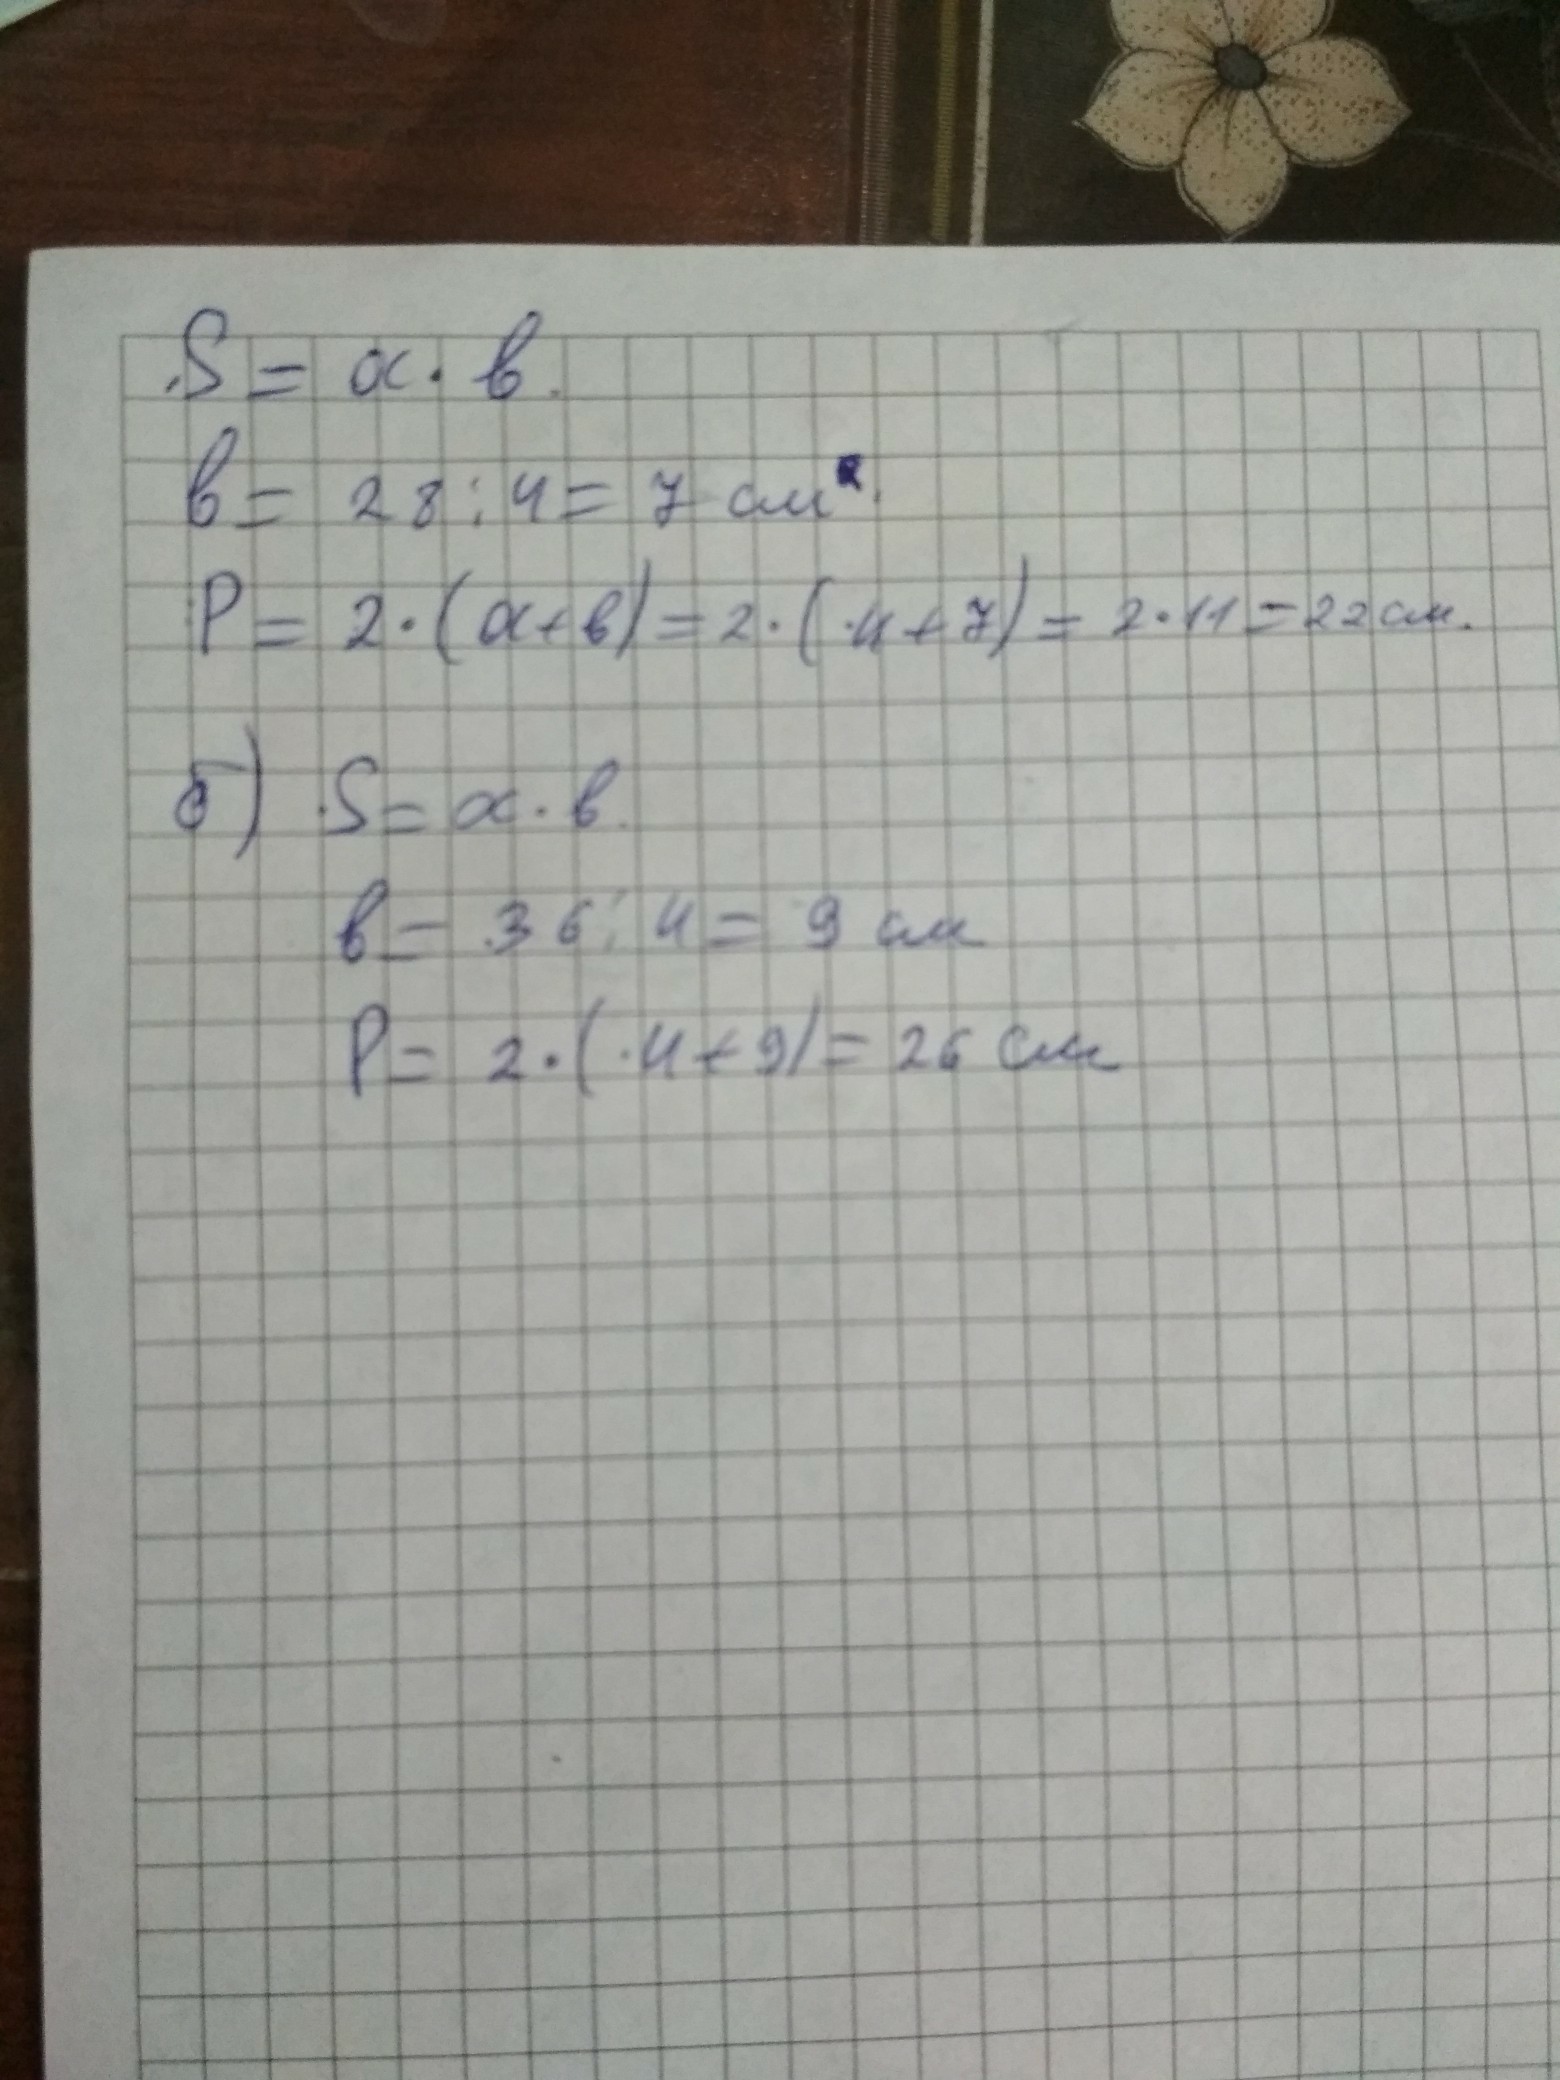 S = a · b.
b = 28 : 4 = 7 см.
P = 2 · (a + b) = 2 · (4 + 7) = 2 · 11 = 22 см.
б) S = a · b.
b = 36 : 4 = 9 см
P = 2 · (4 + 9) = 26 см